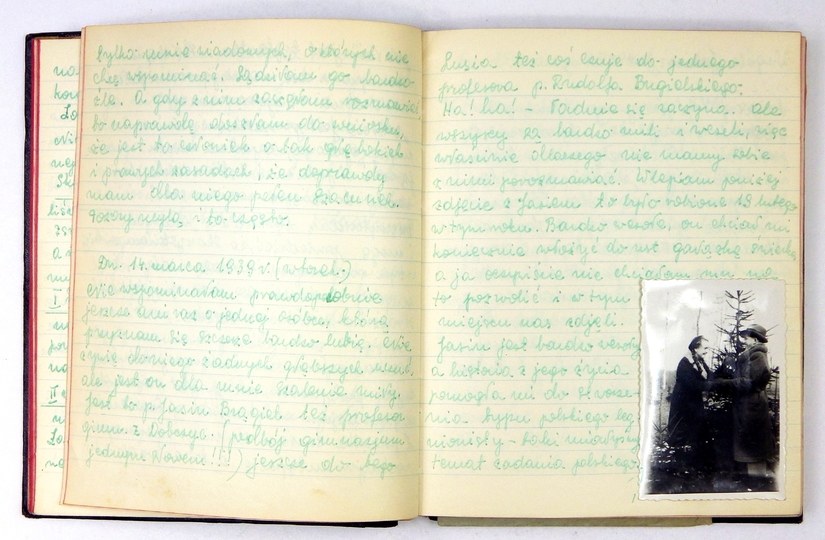 tylko mnie wiadomych, o których nie
chcę wspominać. Sądziłam go bardzo
źle. A gdy z nim zaczęłam rozmawiać
to naprawdę doszłam do wniosku,
że jest to człowiek o tak głębokich
i prawych zasadach, że doprawdy
mam dla niego pełen szacunek.
Pozory mylą i to często.
Dn. 14. marca 1939 r. (wtorek.)
Nie wspominałam prawdopodobnie
jeszcze ani raz o jednej osóbce, którą
przyznam się szczerze bardzo lubię.
żadnych głębszych uczuć,
ale jest on dla mnie szalenie miły.
Jest to p. Jasiu też profesor
gimn. z (podbój gimnazjum
jednym słowem!!!) jeszcze do tego
Lusia też coś czuje do jednego
profesora p. Rudolfa
Ha! ha! - Ładnie się zaczyna, ale
wszyscy są bardzo mili i weseli, więc
właściwie dlaczego nie mamy sobie
z nimi porozmawiać. Wlepiam poniżej
zdjęcie z Jasiem to było robione 18 lutego
w tym roku. Bardzo wesoła, on chciał mi
koniecznie włożyć do ust gałązkę
a ja oczywiście nie chciałam mu na
to pozwolić i w tym
miejscu nas zdjęli.
Jasiu jest bardzo wesoły
a historia z jego życia
pomogła mi do
typu polskiego leg
ionisty - taki miałyśmy
temat zadania polskiego.